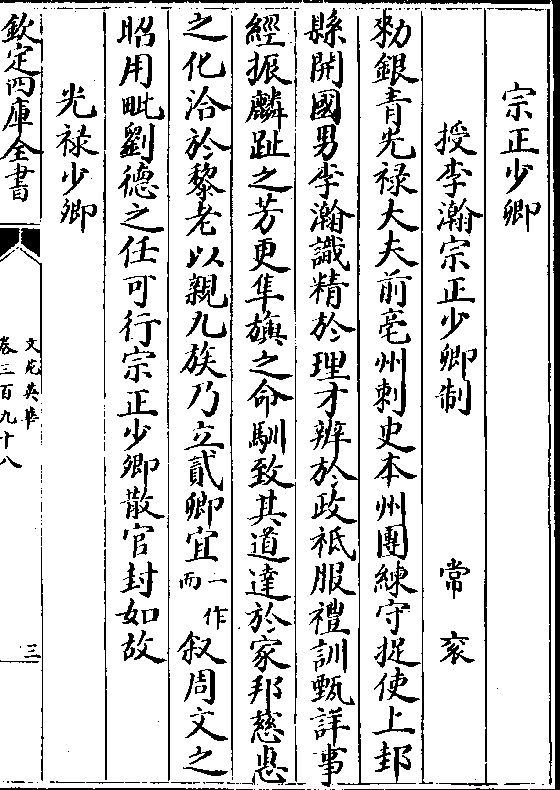 宗正少卿
授李瀚宗正少卿制　常衮
勑銀青光禄大夫前亳州刺史本州團練守捉使上邽
縣開國男李瀚識精於理才辨於政祗服禮訓甄詳事
經振麟趾之芳更隼旟之命馴致其道達於家邦慈惠
之化洽於黎老以親九族乃立貳卿宜一作而叙周文之
昭用毗劉德之任可行宗正少卿散官封如故
光禄少卿
欽定四庫全書
文苑英華
卷三百九十八
三